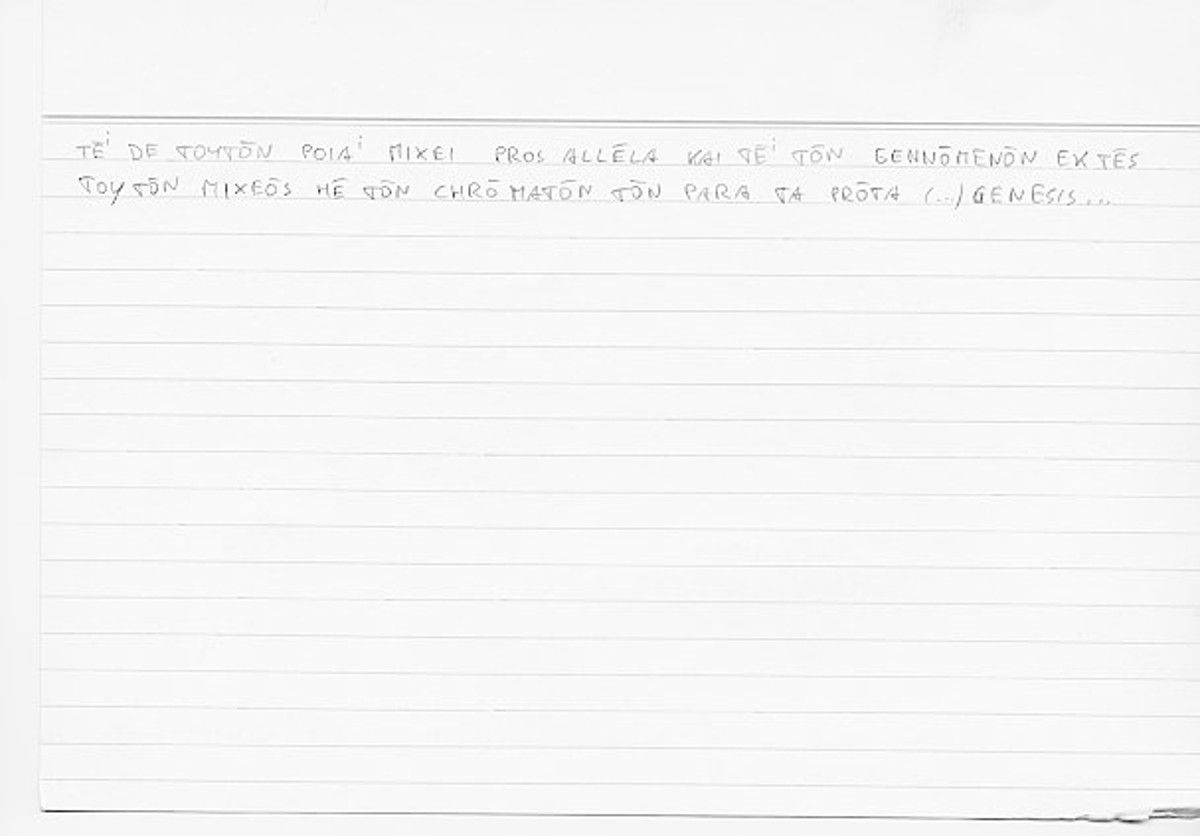 TĒⁱ DE TOYTŌN POIAⁱ MIXEI PROS ALLĒLA KAI TĒⁱ TŌN GENNŌMENŌN EK TĒS
TOYTŌN MIXEŌS HĒ TŌN CHRŌMATŌN TŌN PARA TA PRŌTA (...) GENESIS...